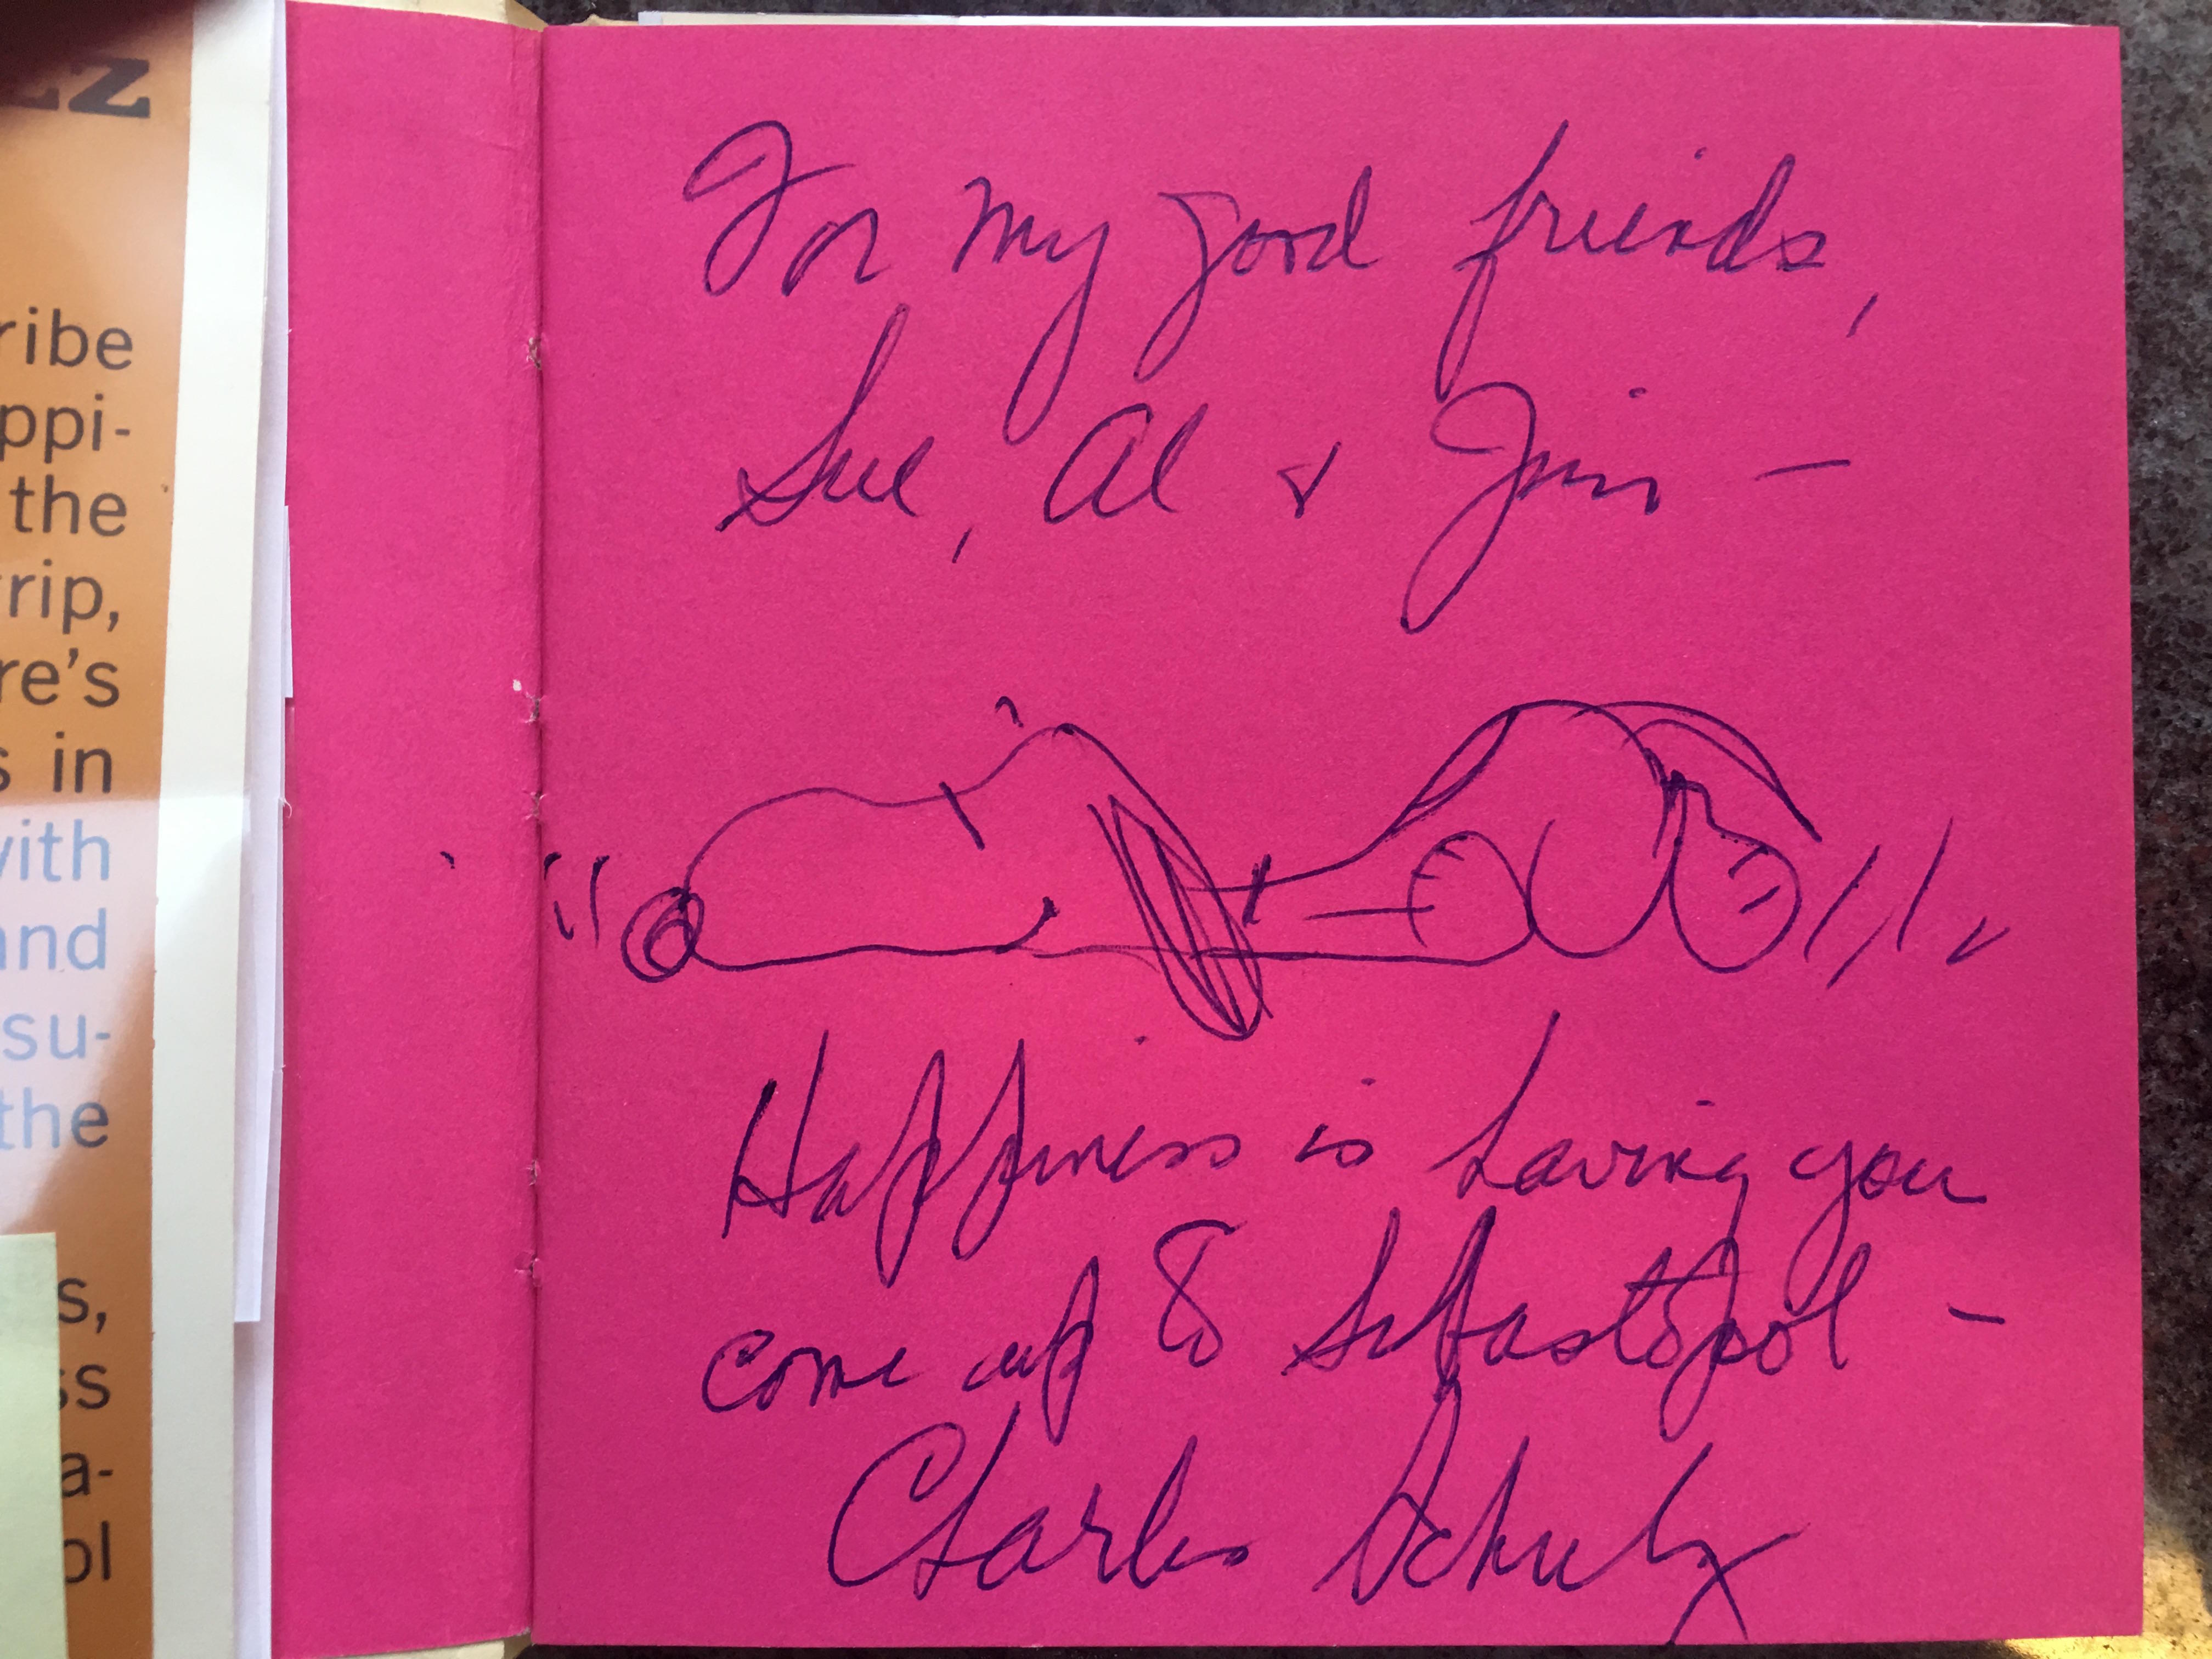 zz
ribe
ppi-
the
rip,
re's
s in
with
and
su-
the
s,
ss
a-
ol
For my good friends,
Sue, Al & Jim —
Happiness is having you
come up to Sebastopol —
Charles Schulz